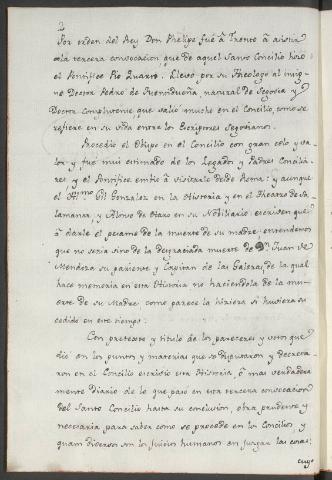 2
Por orden del Rey Don Phelipe fué â Trento â asistir
â la tercera convocacion que de aquel Santo Concilio hizo
el Pontifice Pio Quarto. Llevó por su Theologo al insig-
ne Doctor Pedro de Fuentidueña, natural de Segovia y
Doctor complutense, que valió mucho en el Concilio, como se
refiere en su vida entre los Escriptores Segovianos.
Procedió el Obispo en el Concilio con gran celo y va-
lor y fué mui estimado de los Legados y Padres Concilia-
res y el Pontifice embió â visitarle desde Roma: y aunque
el Gil Gonzalez en la Historia y en el Theatro de Sa-
lamanca, y Alonso de Haro en su Nobiliario escriben que
â darle el pesame de la muerte de su madre: entendemos
que no sería sino de la desgraciada muerte de Dn. Juan de
Mendoza su pariente y Capitan de las Galeras, de la qual
hace memoria en esta Historia no haciendola de la mu-
erte de su Madre como parece la hiciera si huviera su-
cedido en este tiempo:
Con pretexto y titulo de los pareceres y votos que
dió en los puntos y materias que se disputaron y decreta-
ron en el Concilio escribió esta Historia, ô mas verdadera
mente Diario de lo que pasó en esta tercera convocacion
del Santo Concilio hasta su conclusion, obra prudente y
necesaria para saber como se procede en los Concilios, y
quam diversos son los juicios humanos en juzgar las cosas:
cuyo